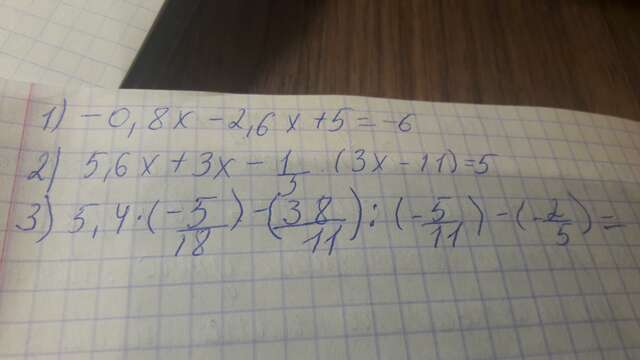 1) -0,8x-2,6x+5=-6
2) 5,6x+3x-1/5 (3x-11)=5
3) 5,4·(-5/18)-(3 8/11):(-5/11)-(-2/5)=